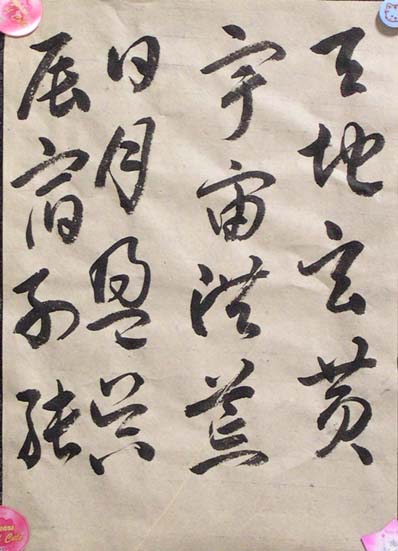 天地玄黄
宇宙洪荒
日月盈昃
辰宿列張